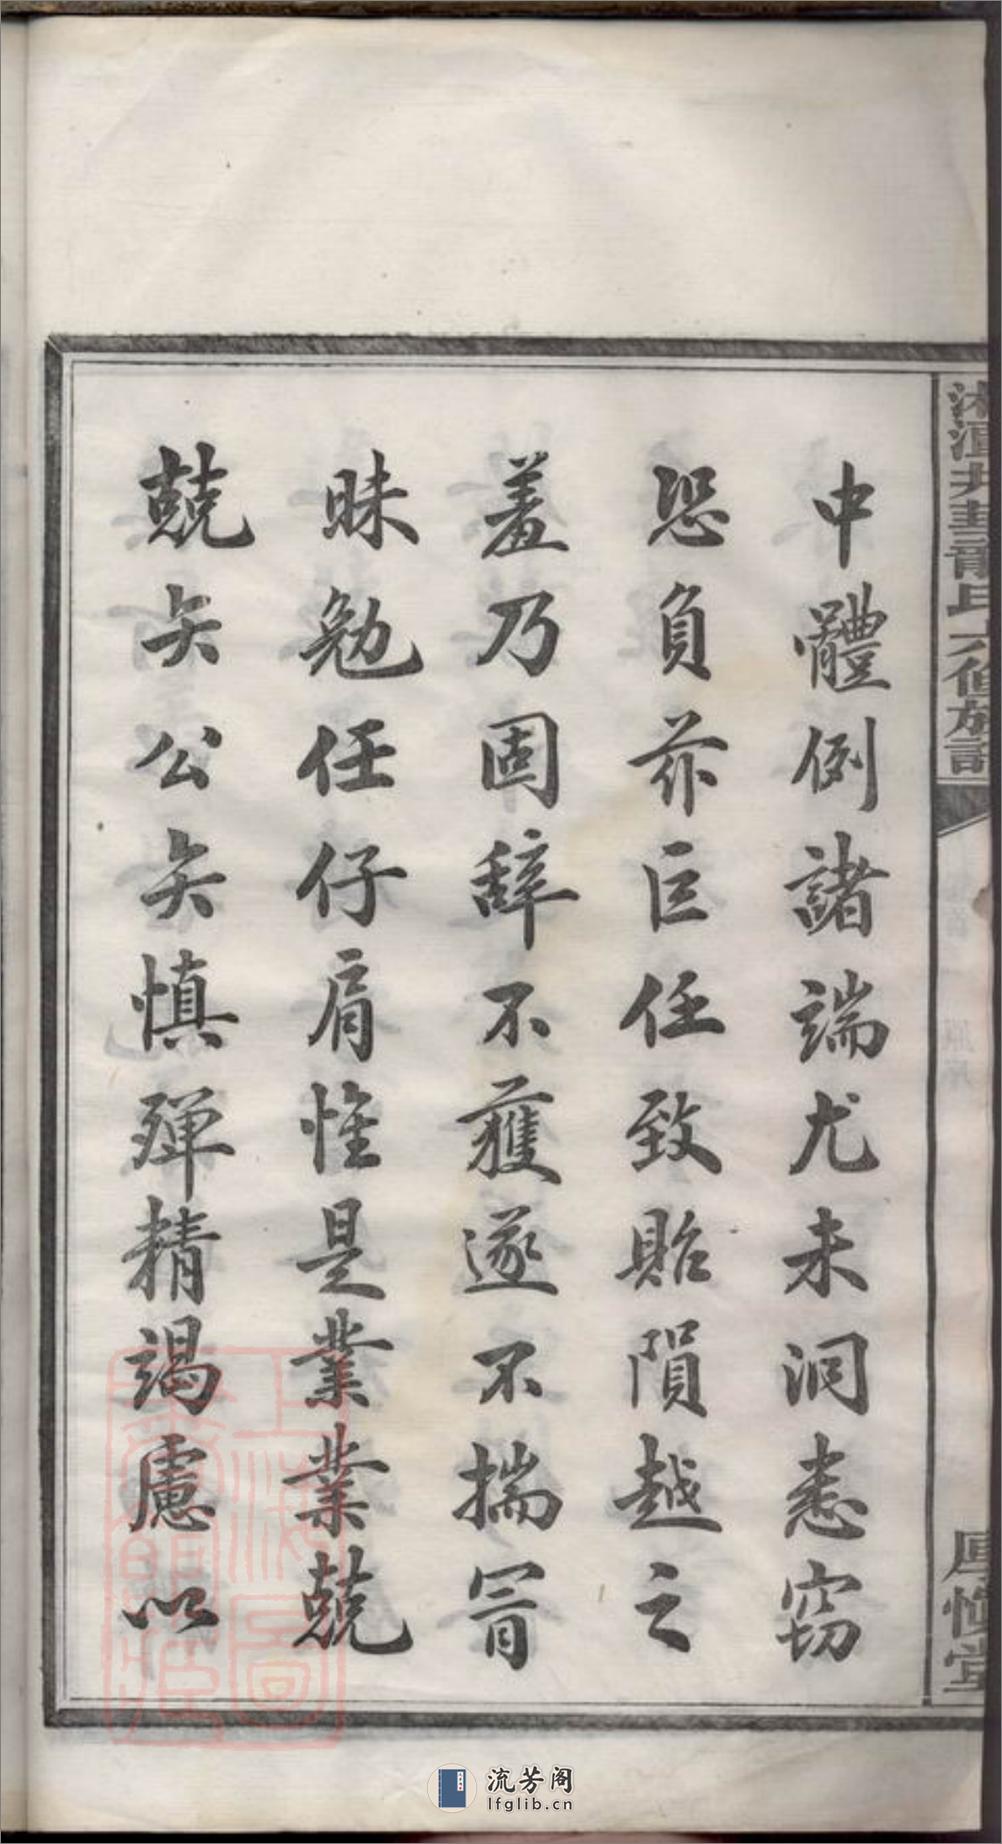 中體例諸端尤未洞悉窃
恐負茲巨任致貽隕越之
羞乃固辭不獲遂不揣冐
昧勉任仔肩惟是業業兢
兢矢公矢慎殫精竭慮以
湘潭井龍氏六修族譜
厚慎堂
流芳阁
lfglib.cn